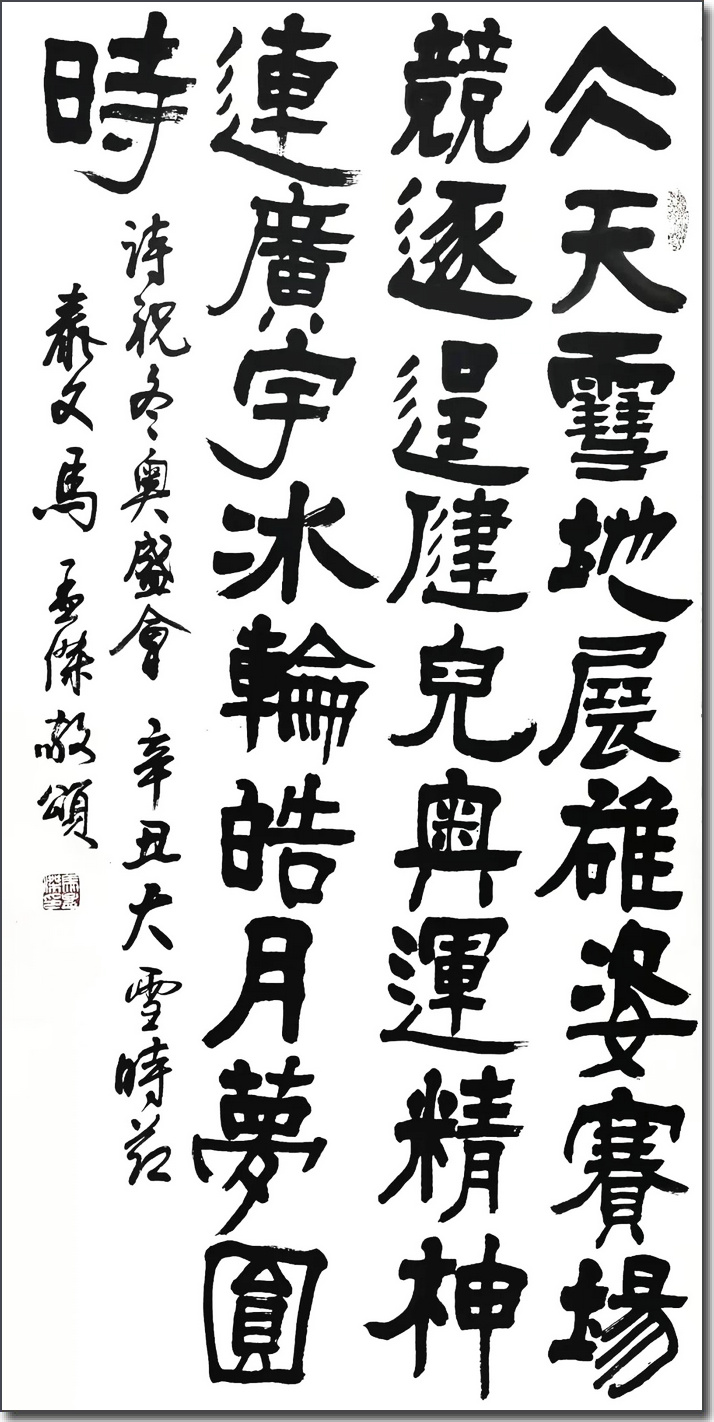 仌天雪地展雄姿賽場
競逐逞健兒奧運精神
連廣宇冰輪皓月夢圓
時
詩祝冬奧盛會 辛丑大雪時节
文馬 孟傑敬頌